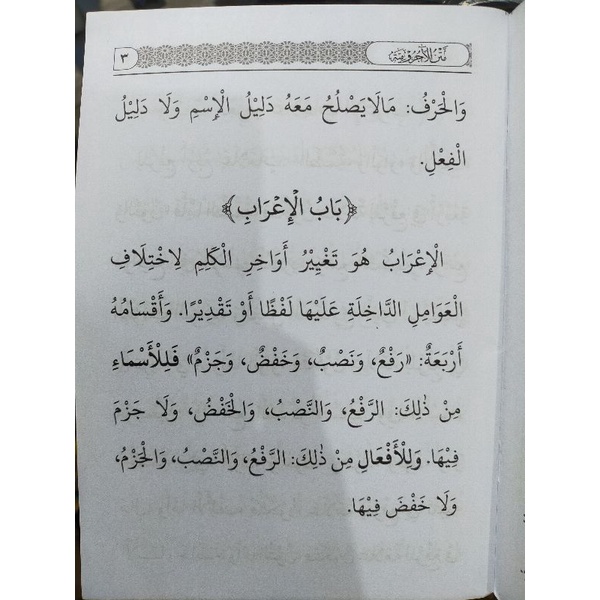 مَتْنُ الْآجُرُّومِيَّة ٣
وَالْحَرْفُ: مَالَا يَصْلُحُ مَعَهُ دَلِيْلُ الْإِسْمِ وَلَا دَلِيْلُ
الْفِعْلِ.
﴿بَابُ الْإِعْرَابِ﴾
الْإِعْرَابُ هُوَ تَغْيِيْرُ أَوَاخِرِ الْكَلِمِ لِاخْتِلَافِ
الْعَوَامِلِ الدَّاخِلَةِ عَلَيْهَا لَفْظًا أَوْ تَقْدِيْرًا. وَأَقْسَامُهُ
أَرْبَعَةٌ: «رَفْعٌ، وَنَصْبٌ، وَخَفْضٌ، وَجَزْمٌ» فَلِلْأَسْمَاءِ
مِنْ ذٰلِكَ: الرَّفْعُ، وَالنَّصْبُ، وَالْخَفْضُ، وَلَا جَزْمَ
فِيْهَا. وَلِلْأَفْعَالِ مِنْ ذٰلِكَ: الرَّفْعُ، وَالنَّصْبُ، وَالْجَزْمُ،
وَلَا خَفْضَ فِيْهَا.